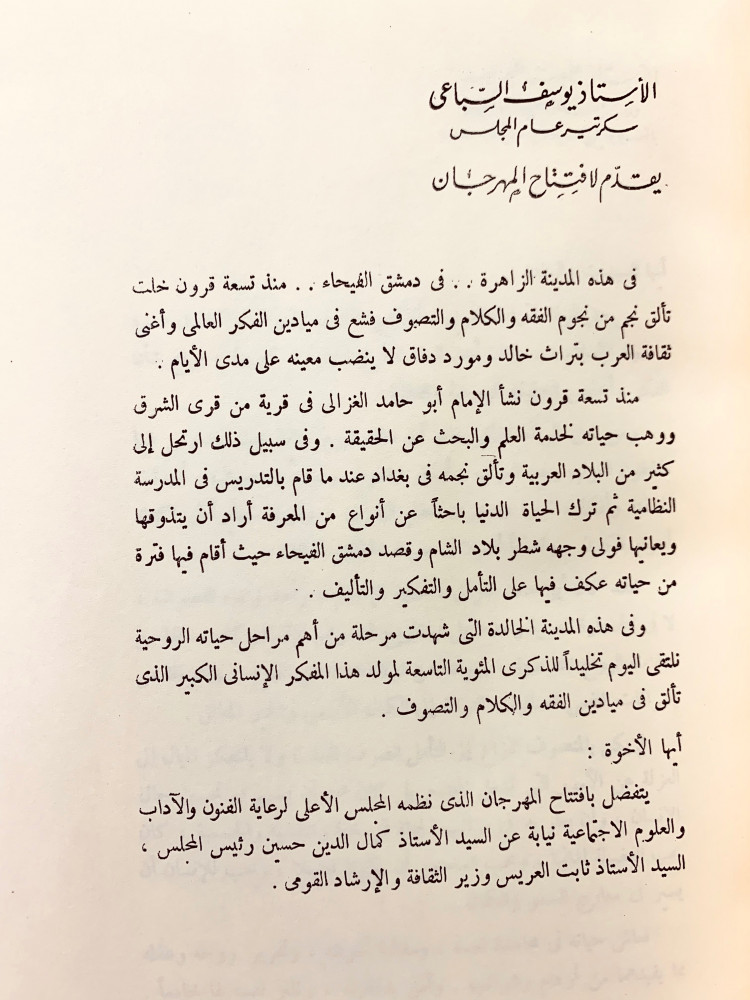 الأستاذ يوسف السّباعى
سكرتير عام المجلس
يقدّم لافتتاح المهرجان
فى هذه المدينة الزاهرة . . فى دمشق الفيحاء . . منذ تسعة قرون خلت
تألق نجم من نجوم الفقه والكلام والتصوف فشع فى ميادين الفكر العالمى وأغنى
ثقافة العرب بتراث خالد ومورد دفاق لا ينضب معينه على مدى الأيام .
منذ تسعة قرون نشأ الإمام أبو حامد الغزالى فى قرية من قرى الشرق
ووهب حياته لخدمة العلم والبحث عن الحقيقة . وفى سبيل ذلك ارتحل إلى
كثير من البلاد العربية وتألق نجمه فى بغداد عند ما قام بالتدريس فى المدرسة
النظامية ثم ترك الحياة الدنيا باحثاً عن أنواع من المعرفة أراد أن يتذوقها
ويعانيها فولى وجهه شطر بلاد الشام وقصد دمشق الفيحاء حيث أقام فيها فترة
من حياته عكف فيها على التأمل والتفكير والتأليف .
وفى هذه المدينة الخالدة التى شهدت مرحلة من أهم مراحل حياته الروحية
نلتقى اليوم تخليداً للذكرى المئوية التاسعة لمولد هذا المفكر الإنسانى الكبير الذى
تألق فى ميادين الفقه والكلام والتصوف .
أيها الأخوة :
يتفضل بافتتاح المهرجان الذى نظمه المجلس الأعلى لرعاية الفنون والآداب
والعلوم الاجتماعية نيابة عن السيد الأستاذ كمال الدين حسين رئيس المجلس ،
السيد الأستاذ ثابت العريس وزير الثقافة والإرشاد القومى .